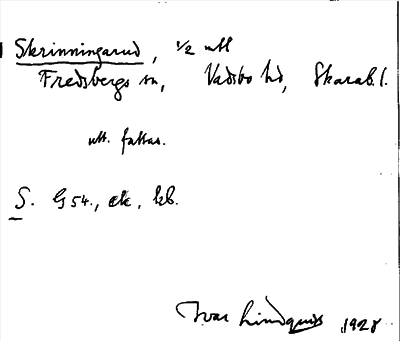 Skrinningarud, 1/2 mtl
Fredsbergs sn, Vadsbo hd, Skarab. l.
utt. fattas.
S. G 54., ek, kb.
Ivar Lindquist 1928